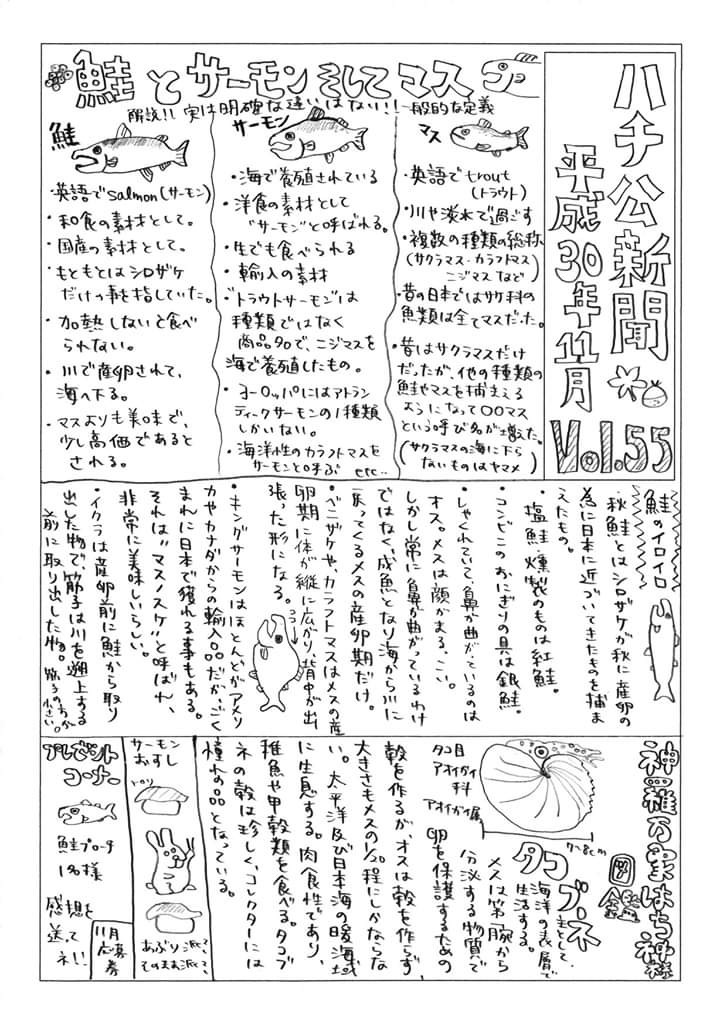 ハチ公新聞
平成30年11月
Vol.55
鮭とサーモンそしてマス
解説!! 実は明確な違いはない!! 一般的な定義
鮭
・英語でsalmon(サーモン)
・和食の素材として。
・国産の素材として。
・もともとはシロザケ
だけの事を指していた。
・加熱しないと食べ
られない。
・川で産卵されて、
海へ下る。
・マスよりも美味で、
少し高価であると
される。
サーモン
・海で養殖されている
・洋食の素材として
"サーモン"と呼ばれる。
・生でも食べられる
・輸入の素材
・トラウトサーモンは
種類ではなく
商品名で、ニジマスを
海で養殖したもの。
・ヨーロッパにはアトラン
ティークサーモンの1種類
しかいない。
・海洋性のカラフトマスを
サーモンと呼ぶ etc…
マス
・英語でtrout
(トラウト)
・川や淡水で過ごす
・複数の種類の総称
(サクラマス・カラフトマス
ニジマスなど)
・昔の日本ではサケ科の
魚類は全てマスだった。
・昔はサクラマスだけ
だったが、他の種類の
鮭やマスを捕まえる
ようになって〇〇マス
という呼び名が増えた。
(サクラマスの海に下ら
ないものはヤマメ)
鮭のイロイロ
・秋鮭とはシロザケが秋に産卵の
為に日本に近づいてきたものを捕ま
えたもの。
・塩鮭・燻製のものは紅鮭。
・コンビニのおにぎりの具は銀鮭。
・しゃくれていて、鼻が曲がっているのは
オス。メスは顔がまるっこい。
しかし常に鼻が曲がっているわけ
ではなく、成魚となり海から川に
戻ってくるメスの産卵期だけ。
・ベニザケや、カラフトマスはメスの産
卵期に体が縦に広がり、背中が出
張った形になる。
・キングサーモンはほとんどがアメリ
カやカナダからの輸入品だが、ごく
まれに日本で獲れる事もある。
それは"マスノスケ"と呼ばれ、
非常に美味しいらしい。
・イクラは産卵前に鮭から取り
出した物で、筋子は川を遡上する
前に取り出した物。
筋子の方が小さい。
神羅万象はち神様
タコブネ
主として、
海洋の表層で
生活する。
タコ目
アオイガイ
科
アオイガイ属
7〜8cm
メスは第一腕から
分泌する物質で
卵を保護するための
殻を作るが、オスは殻を作らず、
大きさもメスの1/20程にしかならな
い。太平洋及び日本海の暖海域
に生息する。肉食性であり、
稚魚や甲殻類を食べる。タコブ
ネの殻は珍しく、コレクターには
憧れの品となっている。
サーモン
おすし
トロリ
あぶり派?、
そのまま派?、
プレゼント
コーナー
鮭ブローチ
1名様
感想を
送って
ネ!!
11月
応募
券